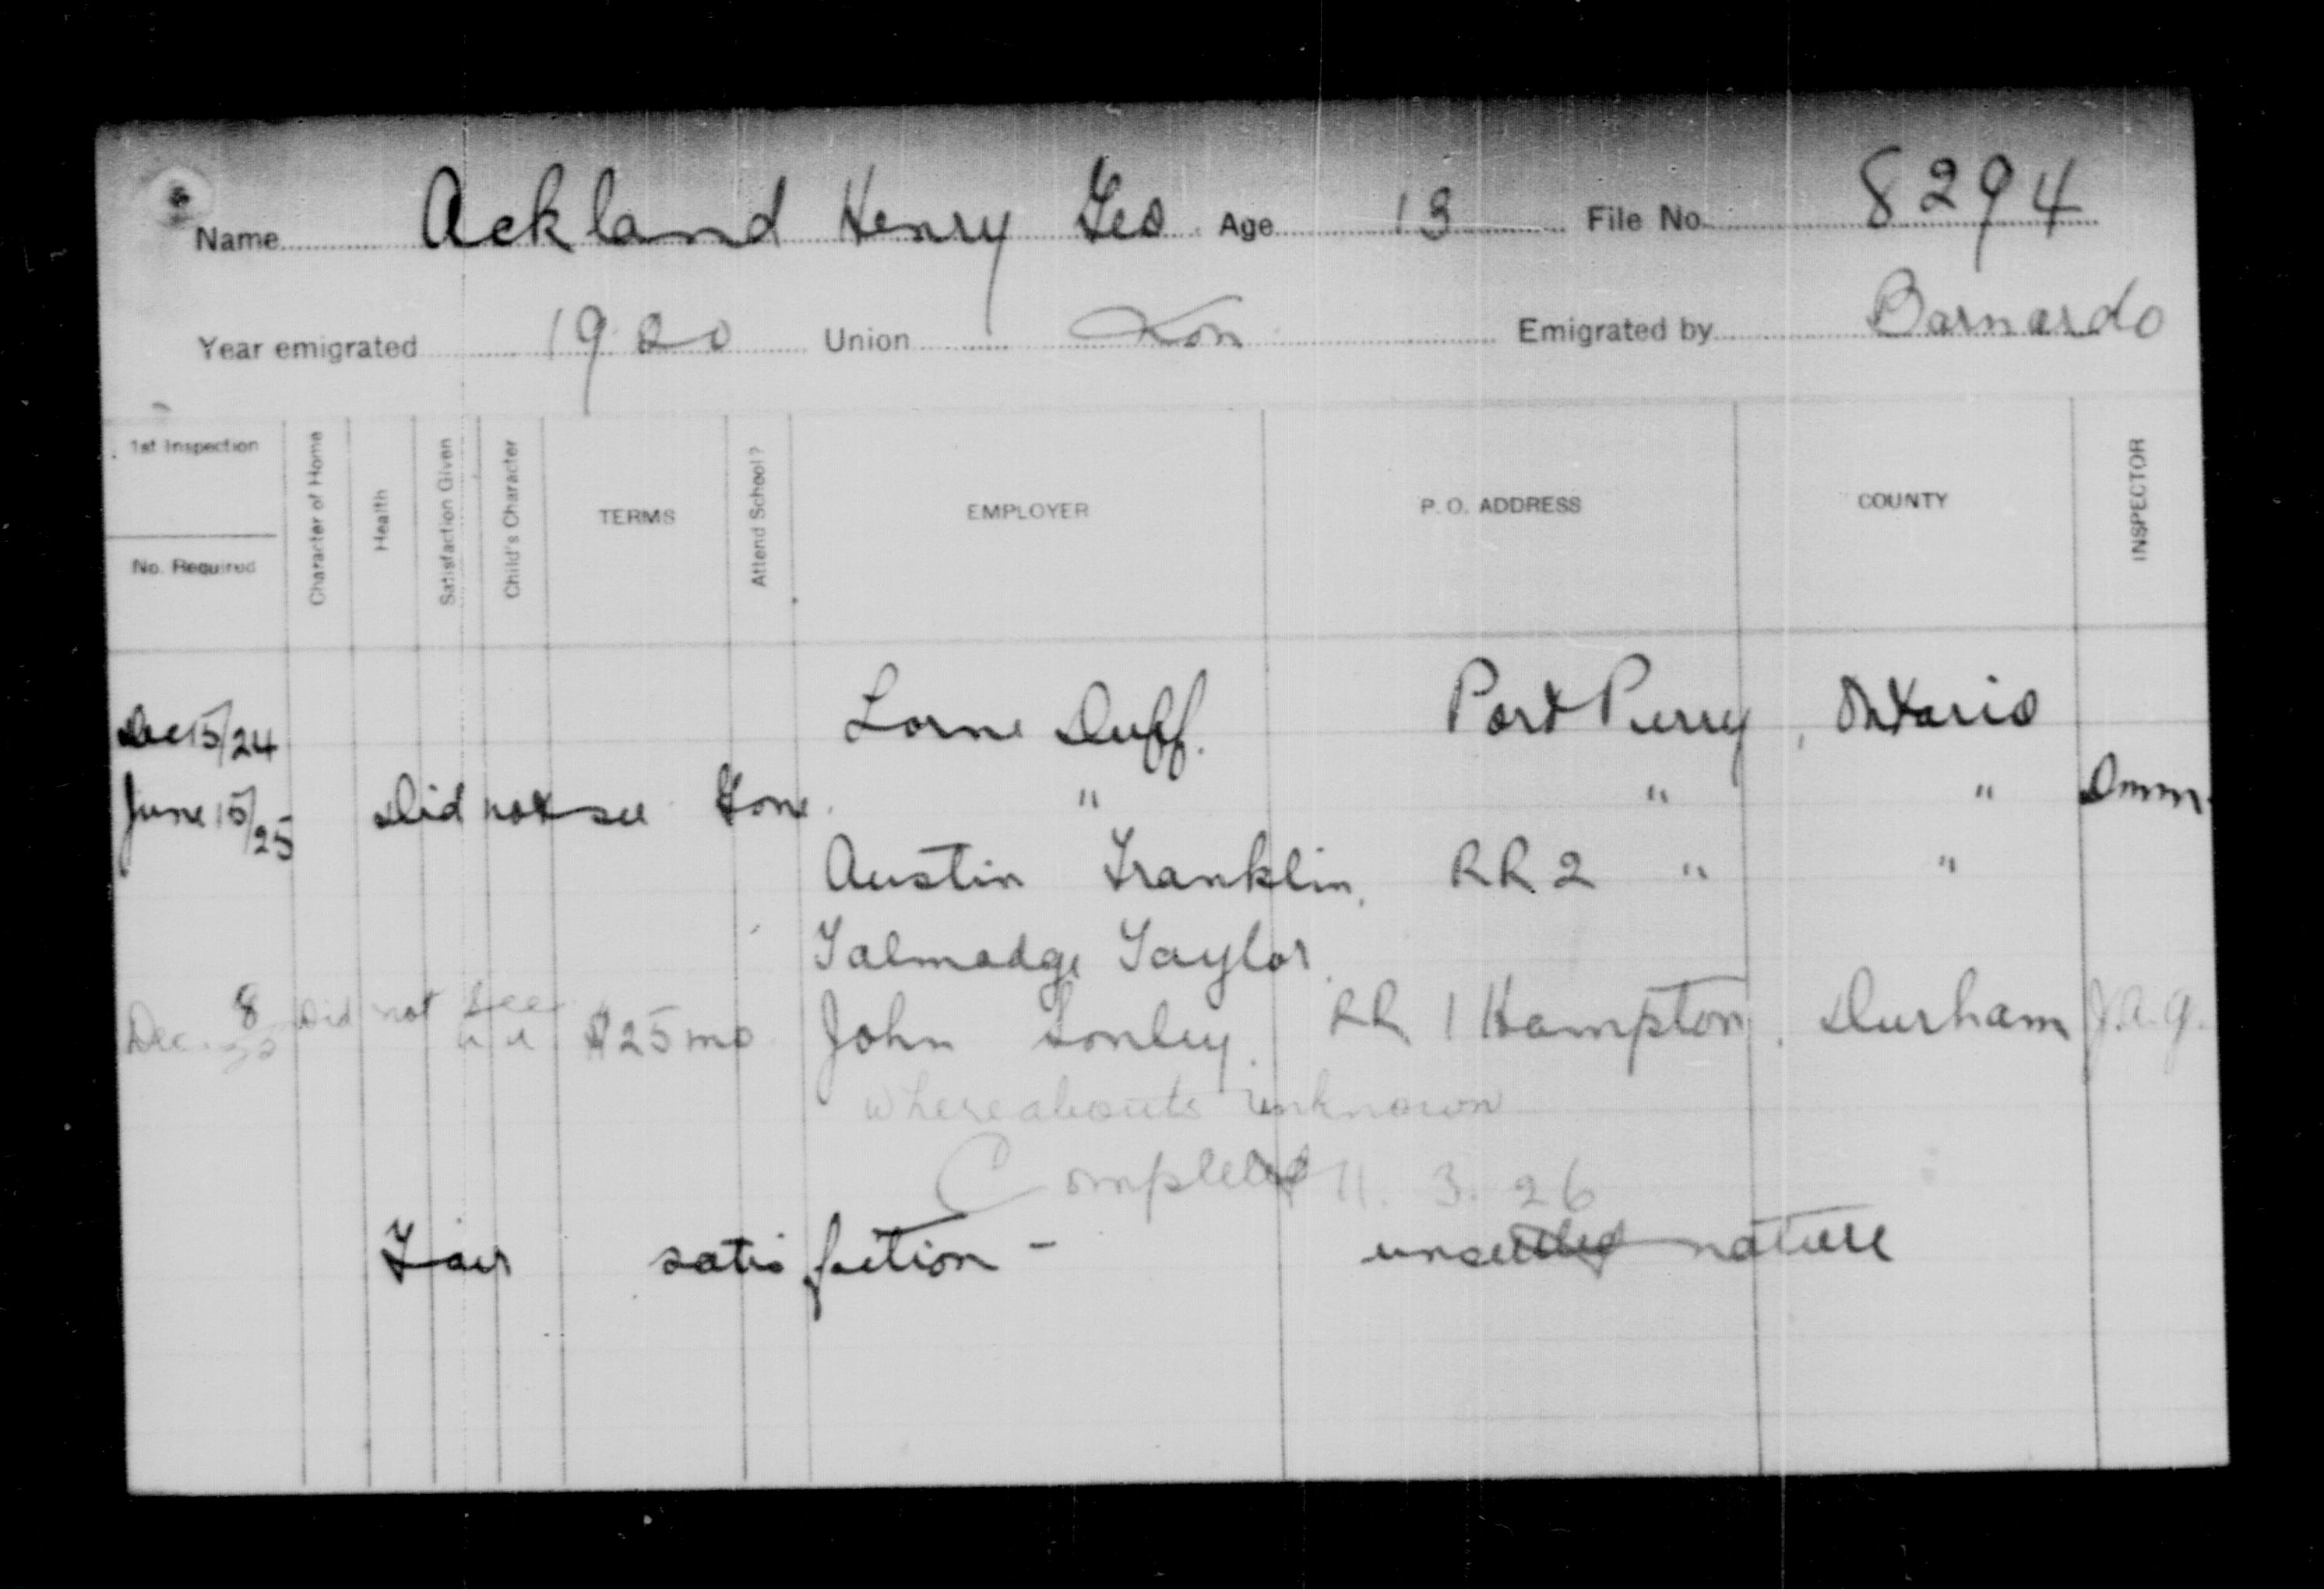 Name Ackland Henry Geo Age 13 File No. 8294
Year emigrated 1920 Union Lon Emigrated by Barnardo
1st Inspection
No. Required
Character of Home
Health
Satisfaction Given
Child's Character
TERMS
Attend School?
EMPLOYER
P. O. ADDRESS
COUNTY
INSPECTOR
Dec 15/24 Lorne Duff. Port Perry, Ontario
June 15/25 Did not see Gone. " " " Dmm.
Austin Franklin, RR 2 " "
Talmadge Taylor.
Dec. 8 Did not see $25 mo John RR 1 Hampton, Durham J.A.G.
whereabouts unknown
Completed 11. 3. 26
Fair satisfaction - unsettled nature